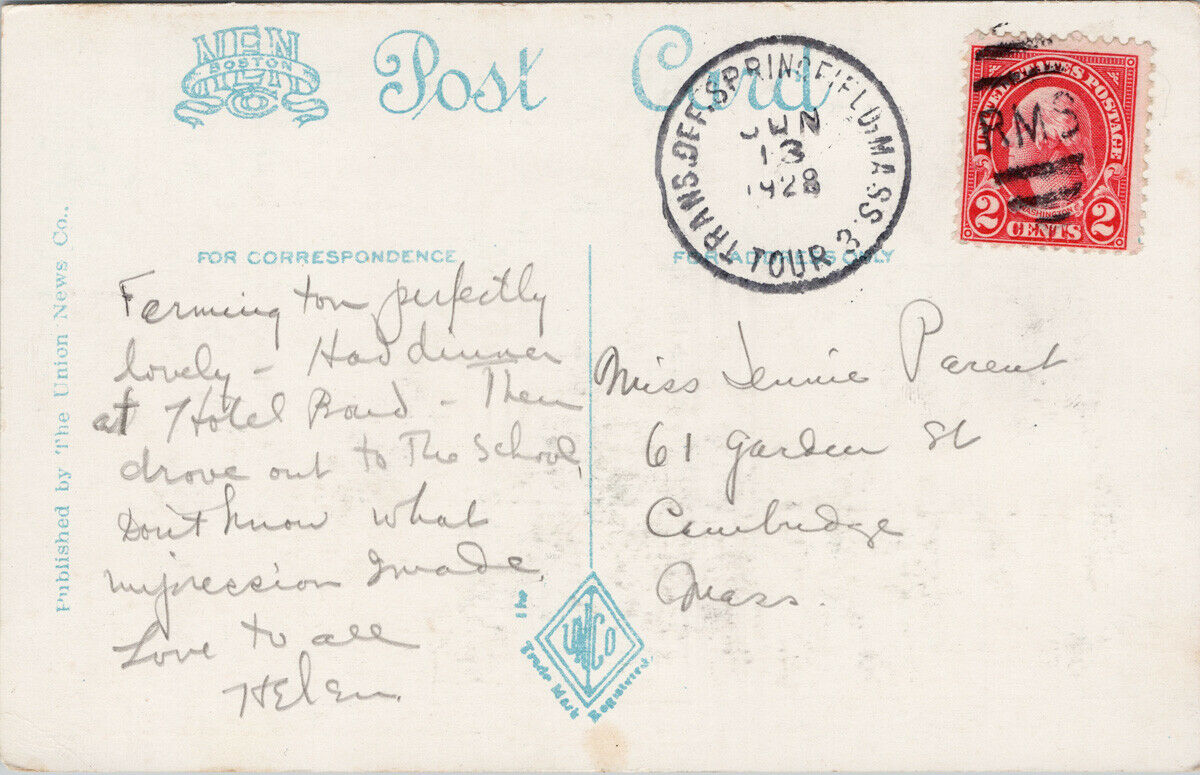 NEN
BOSTON
Post Card
TRANS.DEP.SPRINGFIELD,MASS.
JUN
13
1928
TOUR 3
RMS
UNITED STATES POSTAGE
WASHINGTON
2 CENTS 2
Published by The Union News Co..
FOR CORRESPONDENCE
FOR ADDRESS ONLY
Farmington perfectly
lovely - Had dinner
at Hotel Bond - Then
drove out to The School,
Don't know what
impression I made.
Love to all
Helen.
Miss Jennie Parent
61 Garden St
Cambridge
Mass.
The
UNCo
Trade Mark Registered.